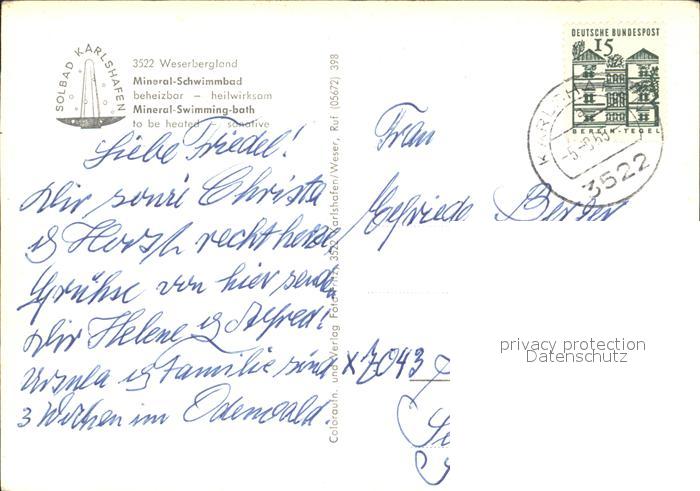 SOLBAD KARLSHAFEN
3522 Weserbergland
Mineral-Schwimmbad
beheizbar – heilwirksam
Mineral-Swimming-bath
to be heated – sanative
DEUTSCHE BUNDESPOST
15
BERLIN-TEGEL
KARLSHA
3522
Liebe Friedel!
Dir sowie Christa
u Horst recht herzl
Grüße von hier senden
Dir Helene u Alfred:
Ursula u Familie sind
3 Wochen im Odenwald.
Coloraufn. und Verlag Foto 3522 Karlshafen/Weser, Ruf (05672) 398
Frau
Elfriede
x 7043
privacy protection
Datenschutz